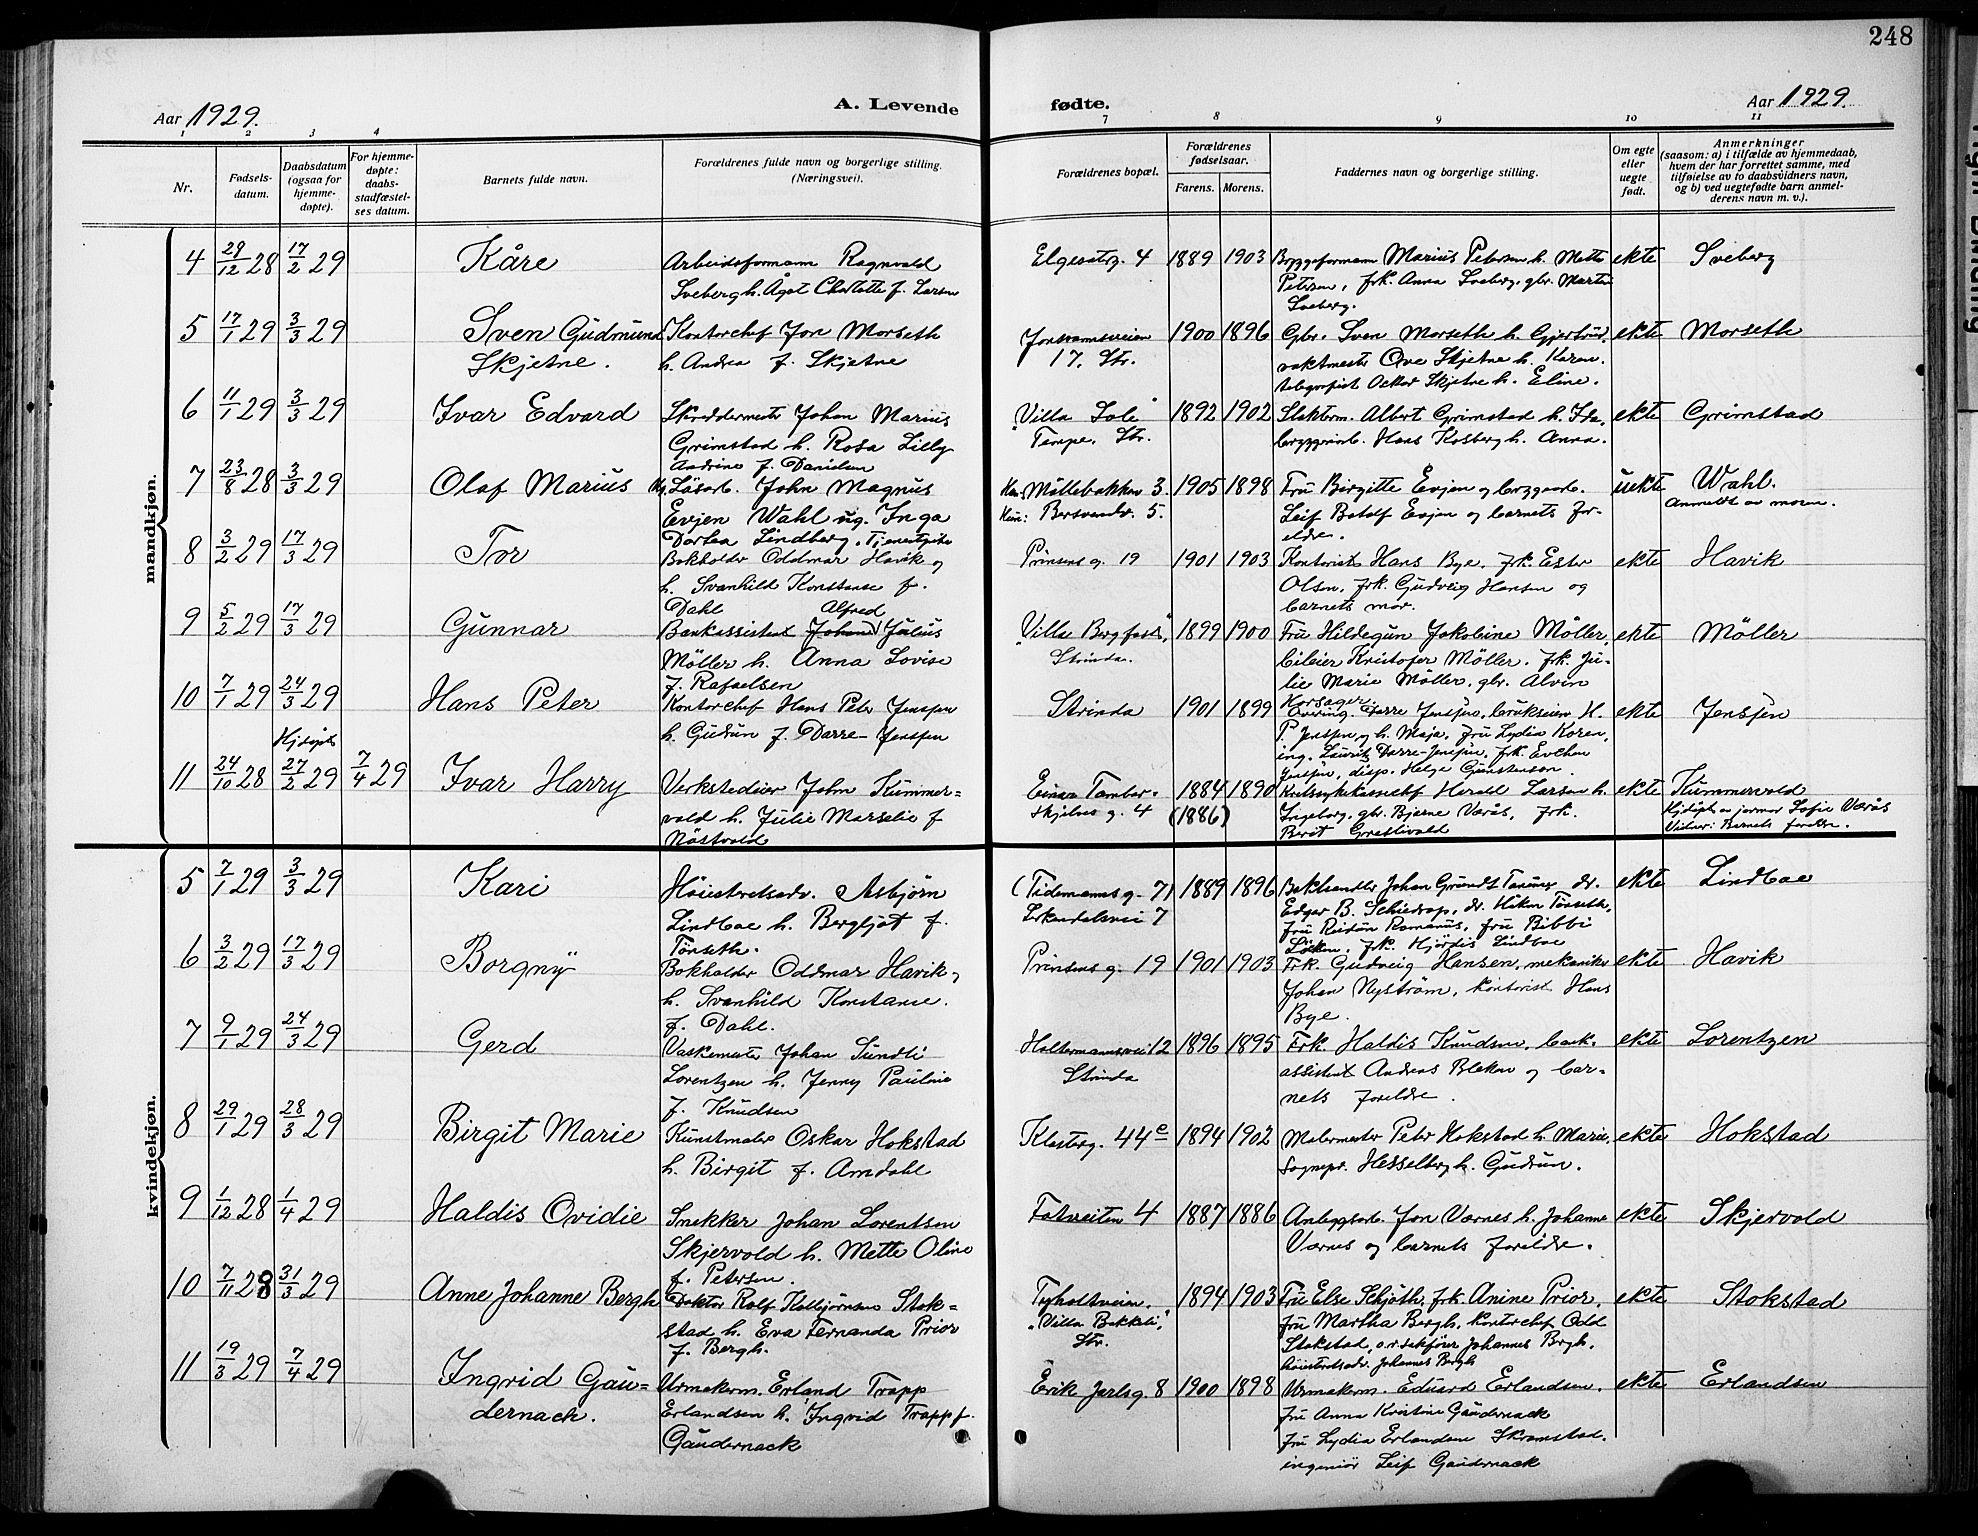 248
Aar 1929.
A. Levende fødte.
Aar 1929.
1 2 3 4 7 8 9 10 11
Nr.
Fødsels-
datum.
Daabsdatum
(ogsaa for
hjemme-
døpte).
For hjemme-
døpte:
daabs-
stadfæstel-
ses datum.
Barnets fulde navn.
Forældrenes fulde navn og borgerlige stilling.
(Næringsvei).
Forældrenes bopæl.
Forældrenes
fødselsaar.
Farens. Morens.
Faddernes navn og borgerlige stilling.
Om egte
eller
uegte
født.
Anmerkninger
(saasom: a) i tilfælde av hjemmedaab,
hvem der har forrettet samme, med
tilføielse av to daabsvidners navn,
og b) ved uegtefødte barn anmel-
derens navn m. v.).
mandkjøn.
4 29/12 28 17/2 29 Kåre
Arbeidsformann Ragnvald
Sveberg h. Ågot Charlotte f. Larsen
Elgesetrg. 4 1889 1903
Bryggeformann Marius Petersen h. Mette
Petersen, frk. Anna Sveberg, gbr. Martin
Sveberg.
ekte Sveberg
5 17/1 29 3/3 29 Sven Gudmund
Skjetne.
Kontorchef Jon Morseth
h. Andrea f. Skjetne
Jonsvannsveien
17. Str.
1900 1896
Gbr. Sven Morseth h. Gjertrud,
vaktmester Ove Skjetne h. Karen.
telegrafist Oskar Skjetne h. Eline.
ekte Morseth
6 11/1 29 3/3 29 Ivar Edvard
Skreddermester Johan Marius
Grimstad h. Rosa Lilly
Andrine f. Danielsen
"Villa Sole"
Tempe, Str.
1892 1902
Slakterm. Albert Grimstad h. Ida,
bryggerinb. Hans Kosberg h. Anna.
ekte Grimstad
7 23/8 28 3/3 29 Olaf Marius
Ug. Løsarb. John Magnus
Evjen Wahl ug. Inga
Dortea Lindberg, Tjenestpike
Han: Møllebakken 3.
Hun: Bersvendv. 5.
1905 1898
Fru Birgitte Evjen og bryggearb.
Leif Botolf Evjen og barnets for-
eldre.
uekte Wahl.
Anmeldt av moren.
8 3/2 29 17/3 29 Tor
Bokholder Oddmar Havik og
h. Svanhild Konstanse f.
Dahl
Prinsens g. 19 1901 1903
Kontorist Hans Bye, frk. Ester
Olsen, frk. Gudveig Hansen og
barnets mor.
ekte Havik
9 5/2 29 17/3 29 Gunnar
Alfred
Bankassistent Johan Julius
Møller h. Anna Lovise
f. Rafaelsen
"Villa Bergfast",
Strinda.
1899 1900
Fru Hildegun Jakobine Møller,
bileier Kristofer Møller. frk. Ju-
lie Marie Møller, gbr. Alvin
Korsager.
ekte Møller
10 7/1 29 24/3 29 Hans Peter
Kontorchef Hans Peter Jenssen
h. Gudrun f. Darre-Jenssen
Strinda 1901 1899
Darre Jenssen, brukseier H.
P. Jenssen og h. Maja, fru Lydia Koren,
ing. Lauritz Darre-Jenssen, frk. Evelyn
Jenssen, disp. Helge Gunstensen.
ekte Jenssen
Hjdøpt
11 24/10 28 27/2 29 7/4 29 Ivar Harry
Verkstedeier John Kummer=
vold h. Julie Marselie f
Nøstvold
Einar Tambar-
skjelves g. 4
1884 1890
(1886)
Kretssykekassechef Harald Larsen h.
Ingeborg, gbr. Bjarne Værås, frk.
Berit
ekte Kummervold
Hjdøpt av jormor Sofie Værås
Vidner: Barnets foreldre.
kvindekjøn.
5 7/1 29 3/3 29 Kari
Høiesteretsadv. Asbjørn
Lindboe h. Bergljot f.
Tønseth.
(Tidemanns g. 7)
Lerkendalsvei 7
1889 1896
Bokhandler Johan Grundt Tanum dr.
Edgar B. Schieldrop, dr. Håkon Tønseth,
fru Reidun Romanus, fru Bibbi
Løken, frk. Hjørdis Lindboe
ekte Lindboe
6 3/2 29 17/3 29 Borgny
Bokholder Oddmar Havik,
h. Svanhild Konstanse.
f. Dahl.
Prinsens g. 19 1901 1903
Frk. Gudveig Hansen, mekaniker
Johan Nystrøm, kontorist Hans
Bye.
ekte Havik
7 9/1 29 24/3 29 Gerd
Vaskemester Johan Sundli
Lorentzen h. Jenny Pauline
f. Knudsen
Holtermannsvei 12
Strinda
1896 1895
Frk. Haldis Knudsen, bank-
assistent Andreas Blekan og bar-
nets foreldre.
ekte Lorentzen
8 29/1 29 28/3 29 Birgit Marie
Kunstmaler Oskar Hokstad
h. Birgit f. Amdahl
Klosterg. 44c 1894 1902
Malermester Peter Hokstad h. Marie,
Sognepr. Hesselberg h. Gudrun.
ekte Hokstad
9 1/12 28 1/4 29 Haldis Ovidie
Snekker Johan Lorentsen
Skjervold h. Mette Oline
f. Petersen.
Fotveiten 4 1887 1886
Anleggsarb. Jon Værnes h. Johanne
Værnes og barnets foreldre.
ekte Skjervold
10 7/11 28 31/3 29 Anne Johanne Bergh
Doktor Rolf Kolbjørnsen Stok=
stad h. Eva Fernanda Prior
f. Bergh.
Tyholtveien.
"Villa Bakkeli",
Str.
1894 1903
Fru Else Schjøth, frk. Anine Prior,
fru Martha Bergh, kontorchef Odd
Stokstad, o.r.sakfører Johannes Bergh,
høiesteretsadv. Johannes Bergh
ekte Stokstad
11 19/3 29 7/4 29 Ingrid Gau=
dernack.
Urmakerm. Erland Trapp
Erlandsen h. Ingrid Trapp f.
Gaudernack
Erik Jarlsg. 8 1900 1898
Urmakerm. Edvard Erlandsen.
fru Anna Kristine Gaudernack
fru Lydia Erlandsen Skramstad.
ingeniør Leif Gaudernack
ekte Erlandsen